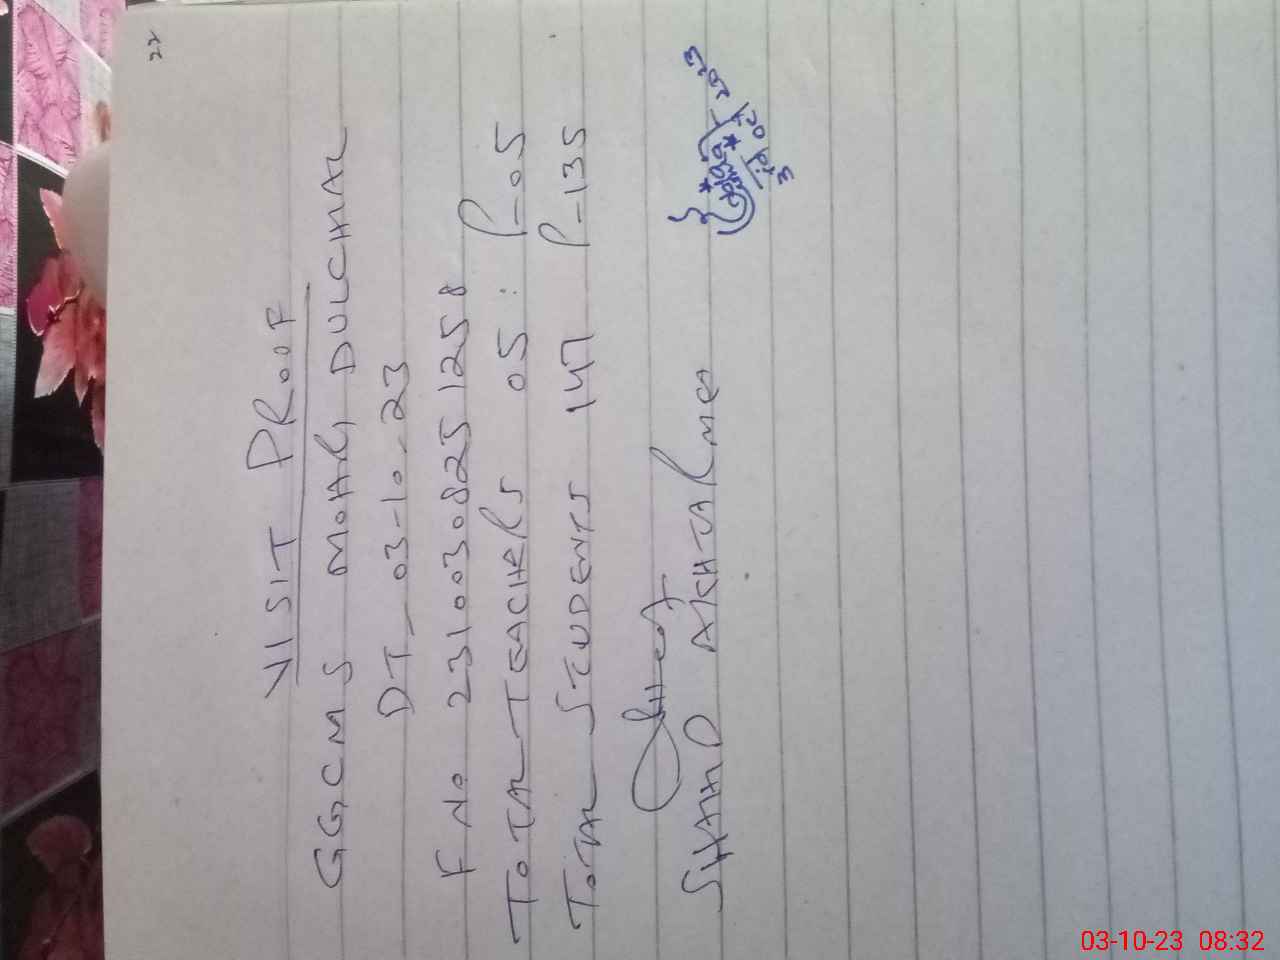 22
VISIT PROOF
GGCMS MOHRI DULCHAL
DT - 03-10-23
F No 2310030825 1258
TOTAL TEACHERS 05 : P-05
TOTAL STUDENTS 147 P-135
SHAHID AKHTAR
3rd Oct 2023
03-10-23 08:32